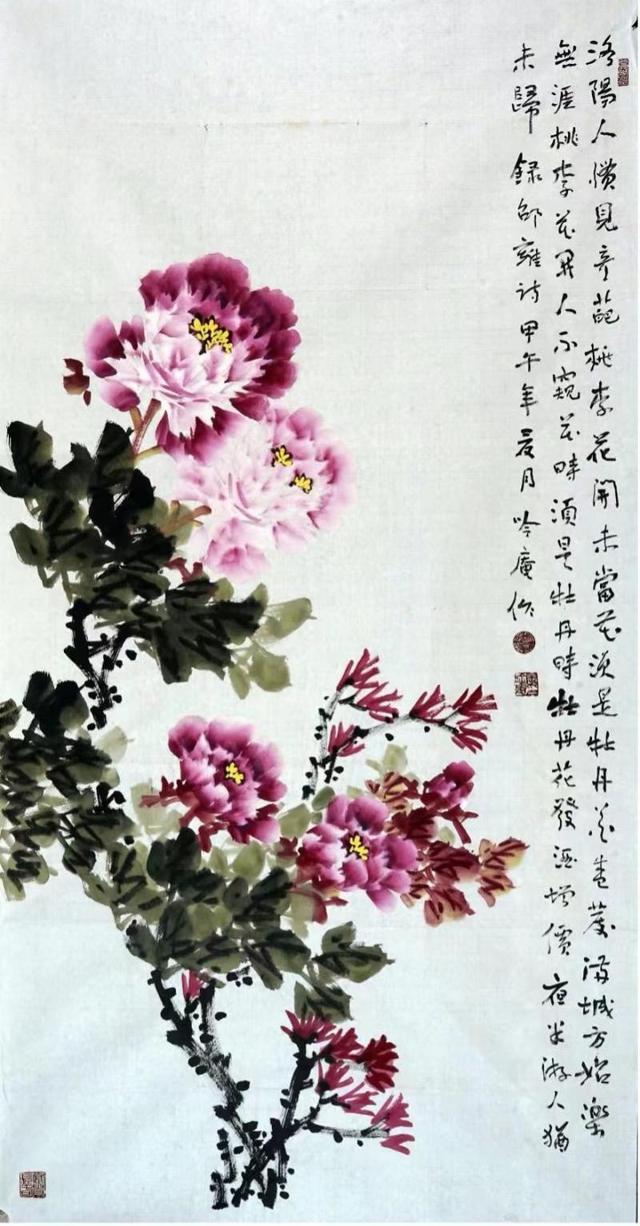 洛陽人慣見奇葩桃李花開未當花須是牡丹花盛發滿城方始樂
無涯桃李花開人不窺花時須是牡丹時牡丹花發酒增價夜半游人猶
未歸 錄邵雍詩甲午年夏月吟庵作